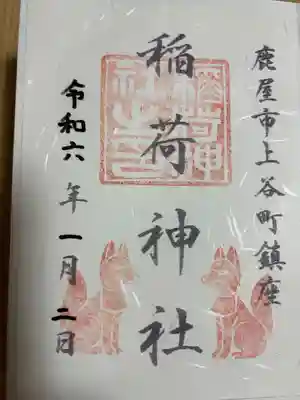 鹿屋市上谷町鎮座
稲荷神社
令和六年一月二日